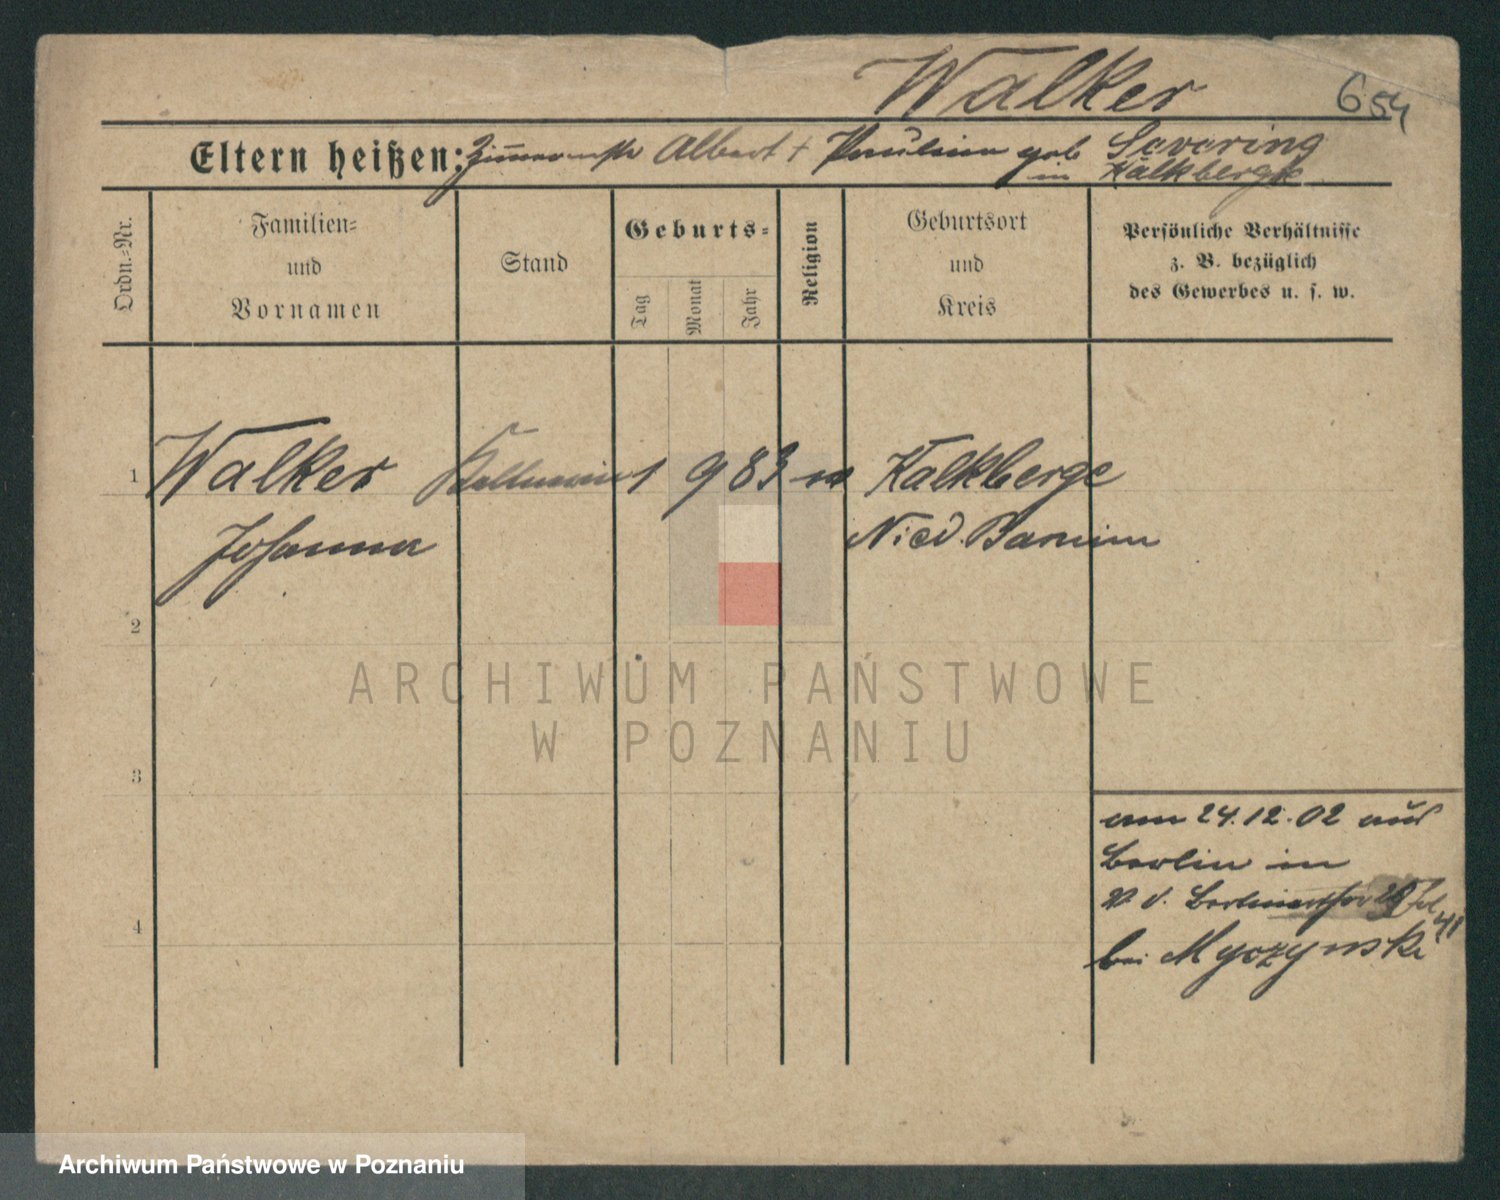 Walker
654
Eltern heißen: Zimmermstr Albert + Pauline geb Severing
in Kalkberge
Ordn.-Nr.
Familien-
und
Vornamen
Stand
Geburts-
Tag
Monat
Jahr
Religion
Geburtsort
und
Kreis
Persönliche Verhältnisse
z. B. bezüglich
des Gewerbes u. s. w.
1 Walker Kellnerin 1 9 83 Kalkberge
Johanna Nied. Barnim
2
3
4
am 24.12.02 aus
Berlin in
bei Myczynski
ARCHIWUM PAŃSTWOWE
W POZNANIU
Archiwum Państwowe w Poznaniu